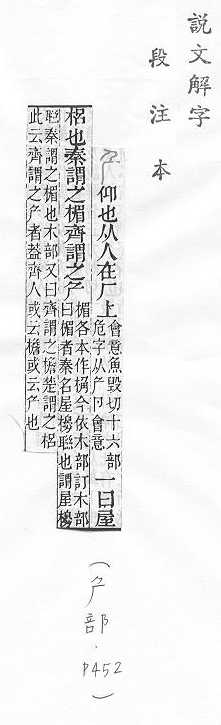 說文解字
段注本
厃 仰也从人在厂上
會意魚毀切十六部
危字从厃卩會意
一曰屋
梠也秦謂之楣齊謂之厃
楣各本作桷今依木部訂木部
曰楣者秦名屋櫋聯也謂屋櫋
聯秦謂之楣也木部又曰齊謂之檐楚謂之梠
此云齊謂之厃者葢齊人或云檐或云厃也
(厃部．P452)